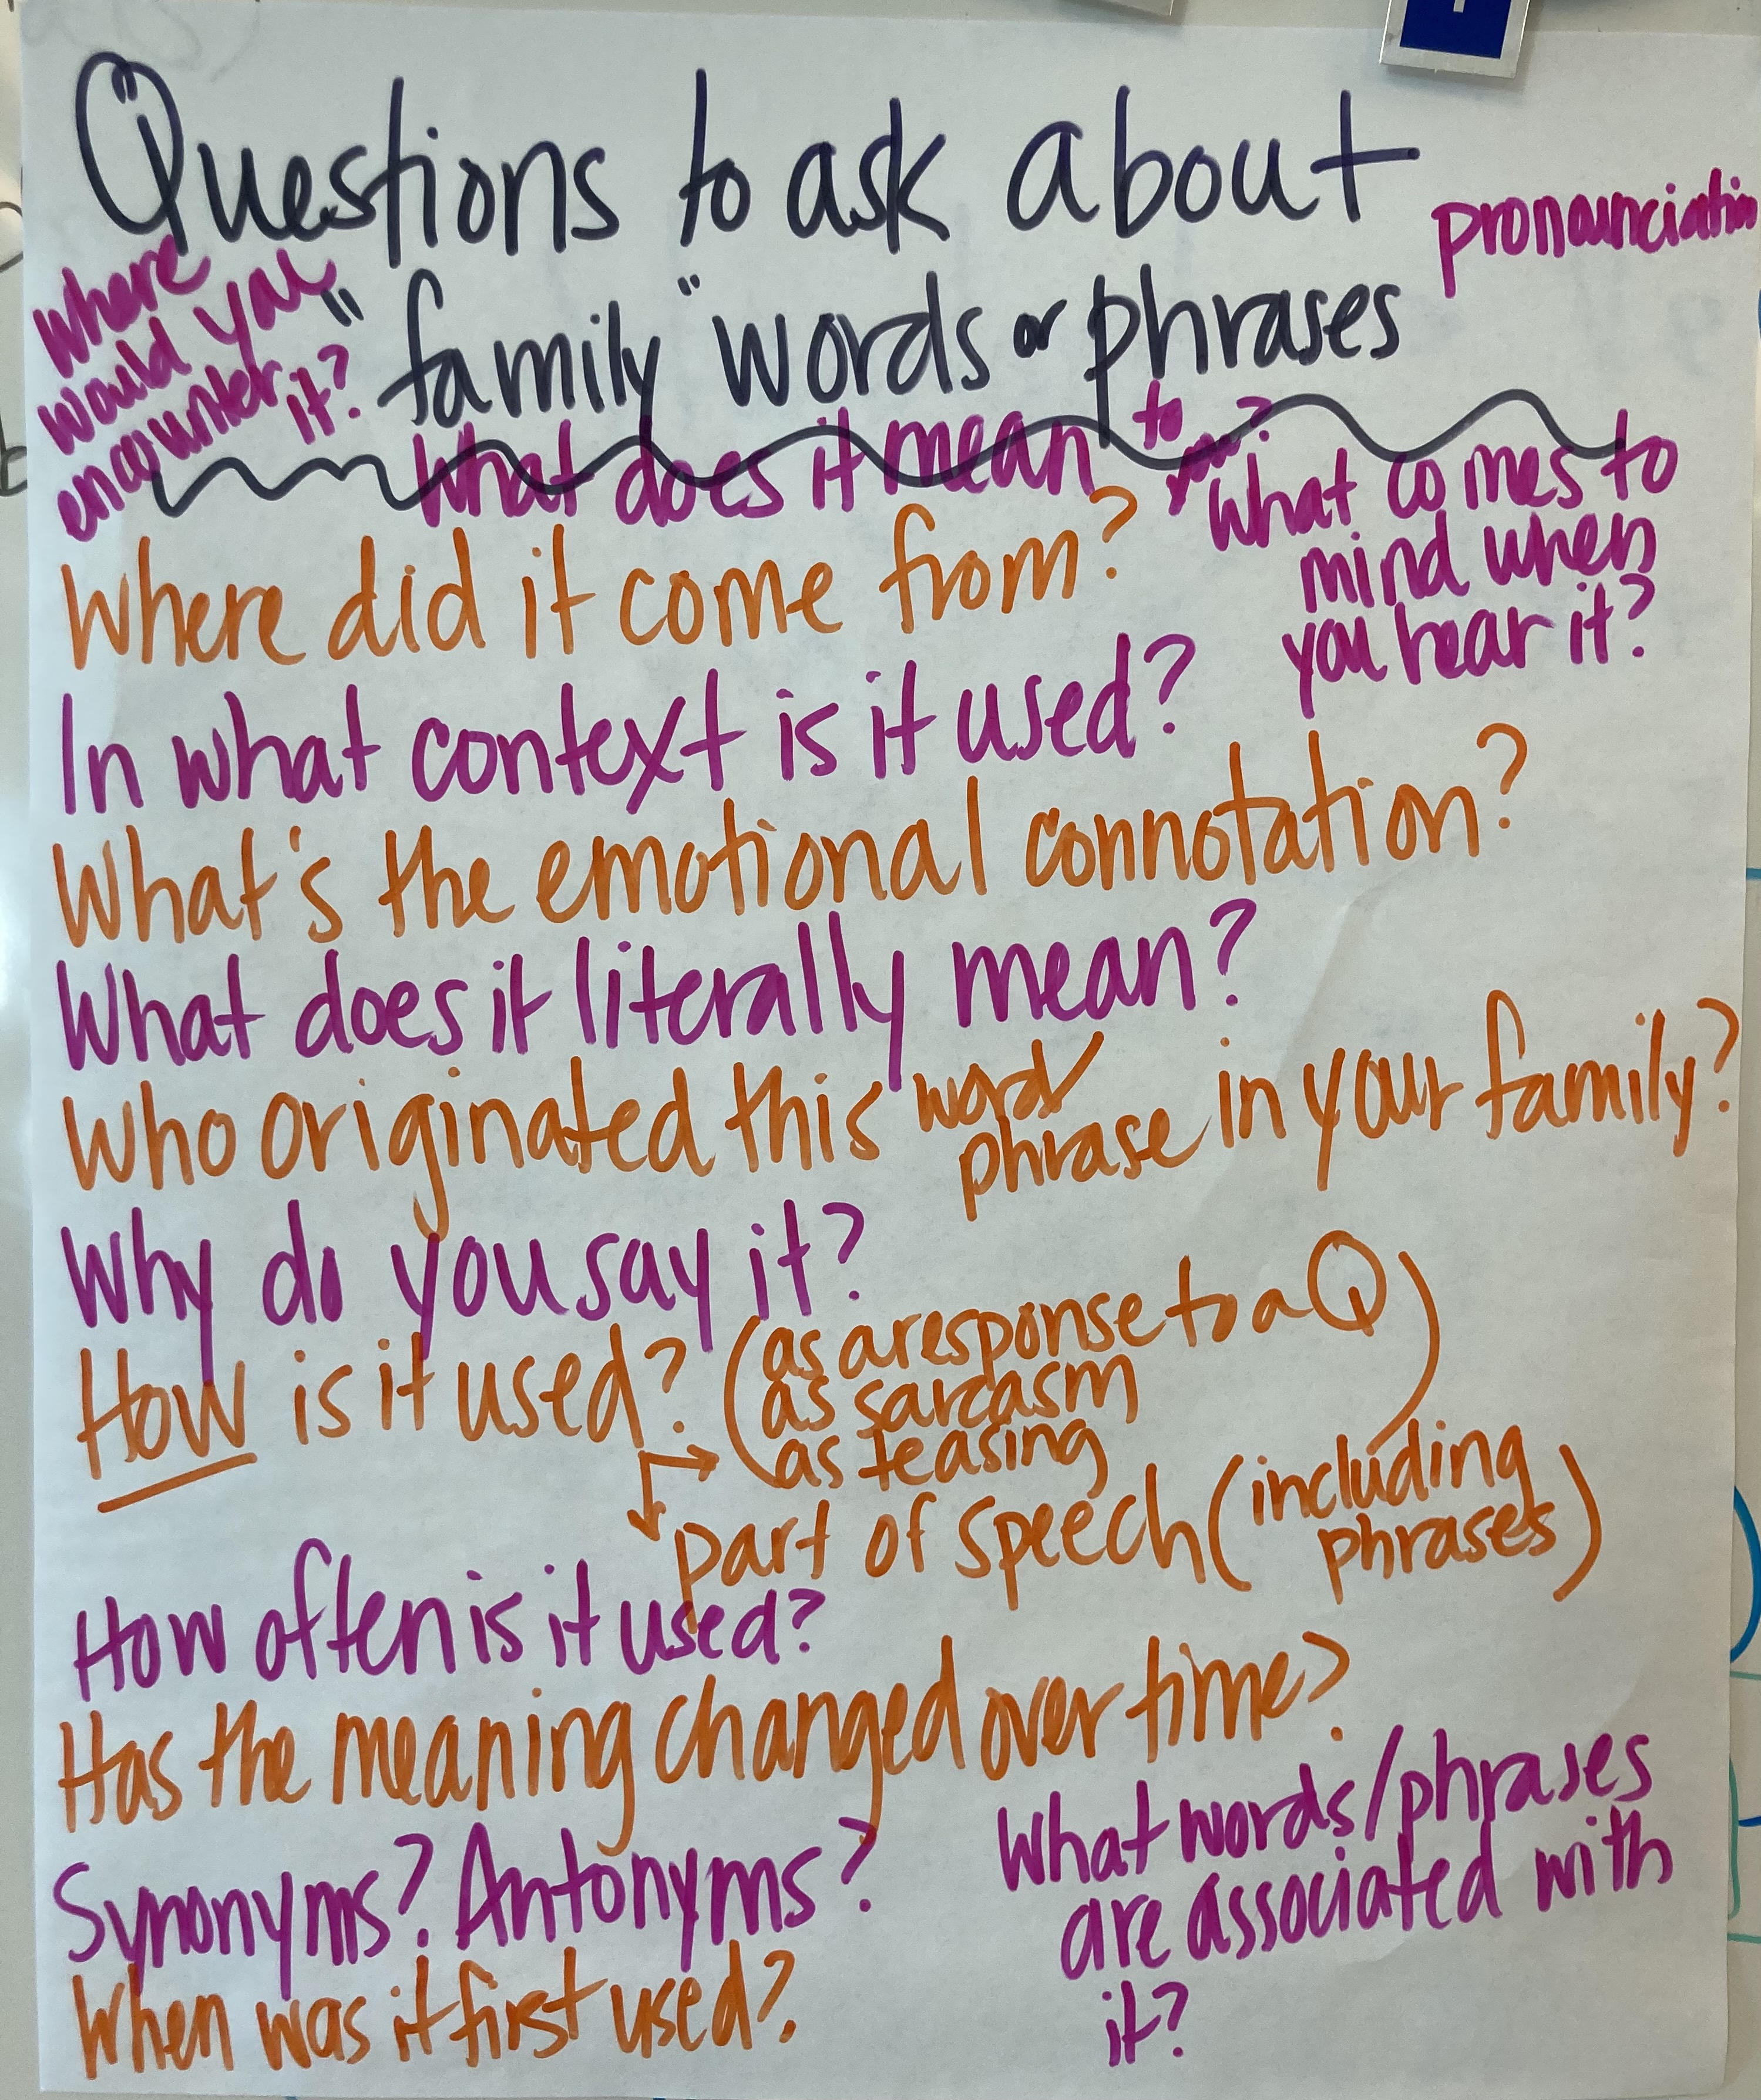 Questions to ask about
"family" words or phrases
pronounciation
Where
would you
encounter it?
What does it mean to you?
What comes to
mind when
you hear it?
Where did it come from?
In what context is it used?
What's the emotional connotation?
What does it literally mean?
Who originated this word/phrase in your family?
Why do you say it?
How is it used? (as a response to a Q
as sarcasm
as teasing)
part of speech (including
phrases)
How often is it used?
Has the meaning changed over time?
Synonyms? Antonyms?
When was it first used?
What words/phrases
are associated with
it?